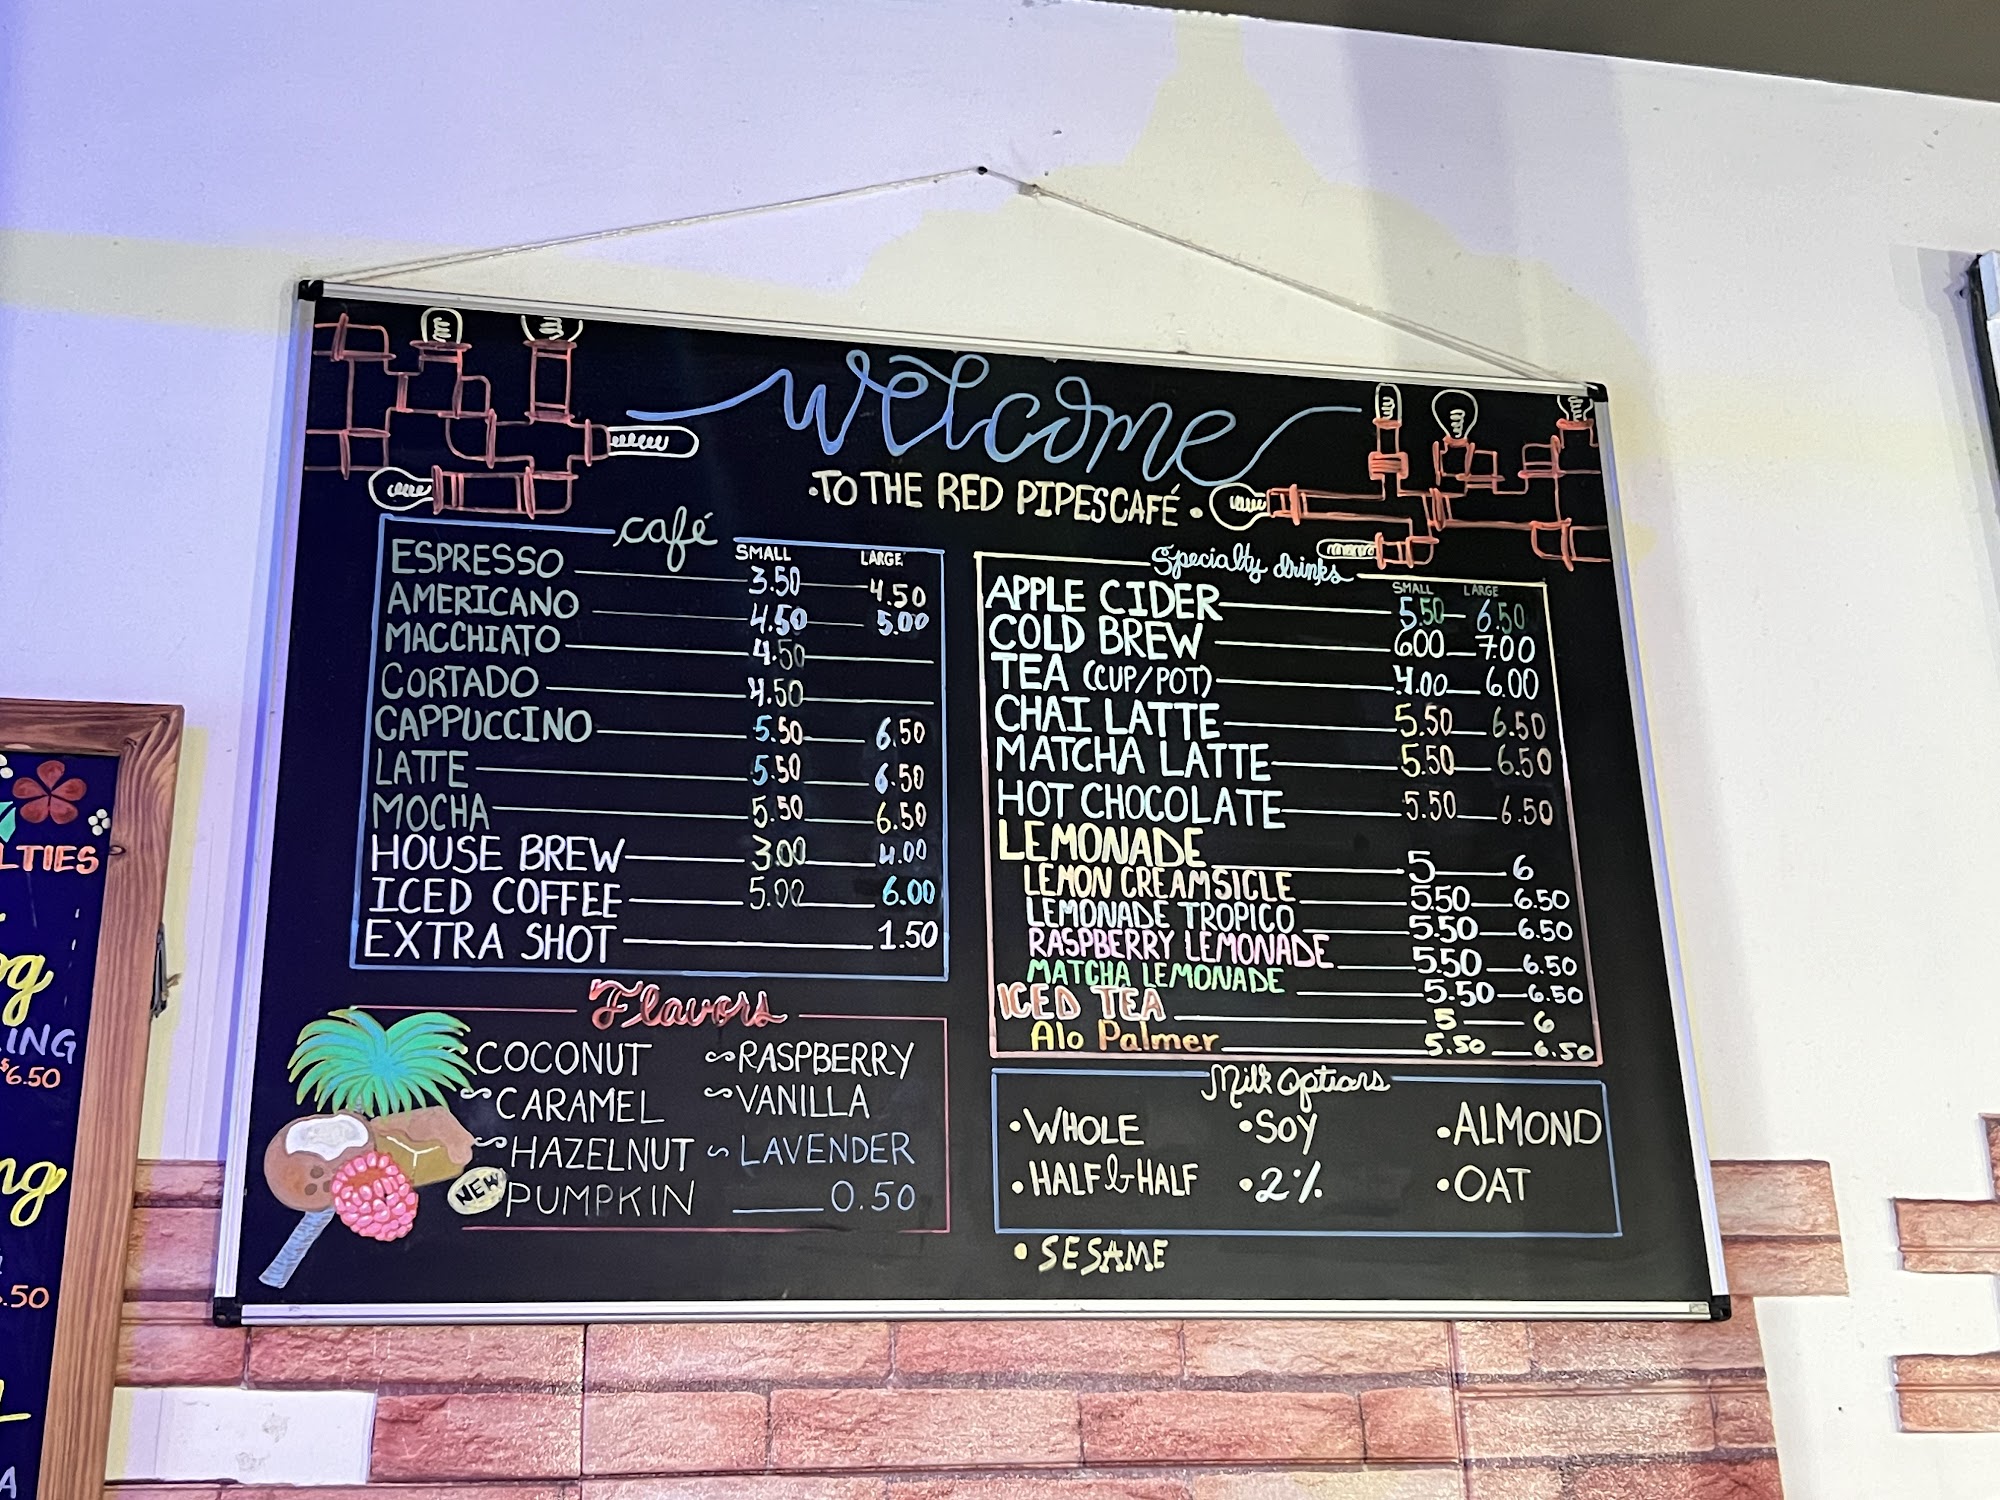 Welcome
•TO THE RED PIPES CAFÉ•
café
SMALL LARGE
ESPRESSO 3.50 4.50
AMERICANO 4.50 5.00
MACCHIATO 4.50
CORTADO 4.50
CAPPUCCINO 5.50 6.50
LATTE 5.50 6.50
MOCHA 5.50 6.50
HOUSE BREW 3.00 4.00
ICED COFFEE 5.00 6.00
EXTRA SHOT 1.50
Flavors
COCONUT ~RASPBERRY
~CARAMEL ~VANILLA
~HAZELNUT ~LAVENDER
NEW PUMPKIN 0.50
Specialty drinks
SMALL LARGE
APPLE CIDER 5.50 6.50
COLD BREW 6.00 7.00
TEA (CUP/POT) 4.00 6.00
CHAI LATTE 5.50 6.50
MATCHA LATTE 5.50 6.50
HOT CHOCOLATE 5.50 6.50
LEMONADE 5 6
LEMON CREAMSICLE 5.50 6.50
LEMONADE TROPICO 5.50 6.50
RASPBERRY LEMONADE 5.50 6.50
MATCHA LEMONADE 5.50 6.50
ICED TEA 5 6
Alo Palmer 5.50 6.50
Milk Options
•WHOLE •SOY •ALMOND
•HALF & HALF •2% •OAT
•SESAME
LTIES
og
ING
$6.50
ng
.50
A